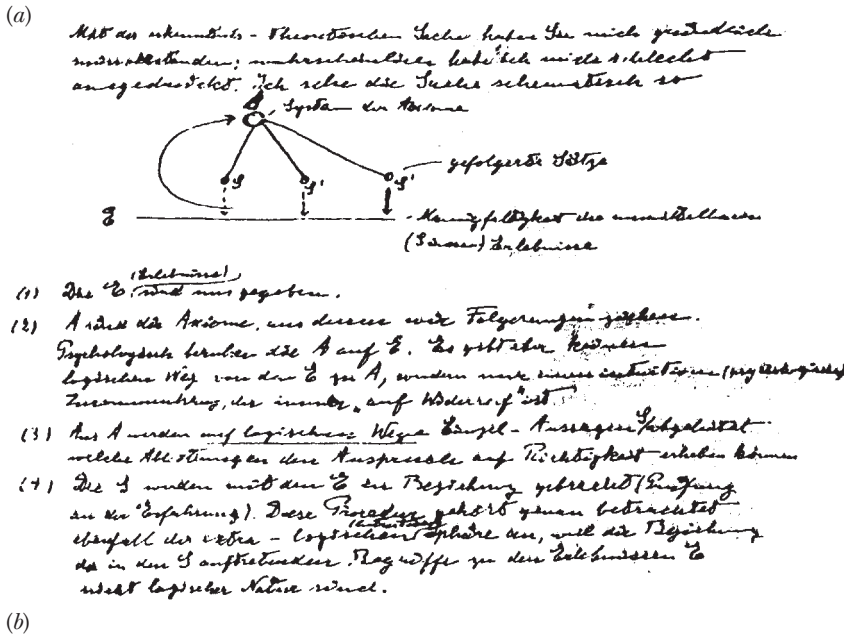 (a)
Mit der erkenntnis-theoretischen Sache haben Sie mich gründlich
missverstanden; wahrscheinlich habe ich mich schlecht
ausgedrückt. Ich sehe die Sache schematisch so
A System der Axiome
S S' S' gefolgerte Sätze
E Mannigfaltigkeit der unmittelbaren
(Sinnes) Erlebnisse
(1) Die E (Erlebnisse) sind uns gegeben.
(2) A sind die Axiome, aus denen wir Folgerungen ziehen.
Psychologisch beruhen die A auf E. Es gibt aber keinen
logischen Weg von den E zu A, sondern nur einen intuitiven (psychologischen)
Zusammenhang, der immer „auf Widerruf" ist.
(3) Aus A werden auf logischem Wege Einzel-Aussagen S abgeleitet
welche Ableitungen den Anspruch auf Richtigkeit erheben können
(4) Die S werden mit den E in Beziehung gebracht (Prüfung
an der Erfahrung). Diese Prozedur gehört genau betrachtet
ebenfalls der extra-logischen (intuitiven) Sphäre an, weil die Beziehung
der in den S auftretenden Begriffe zu den Erlebnissen E
nicht logischer Natur sind.
(b)